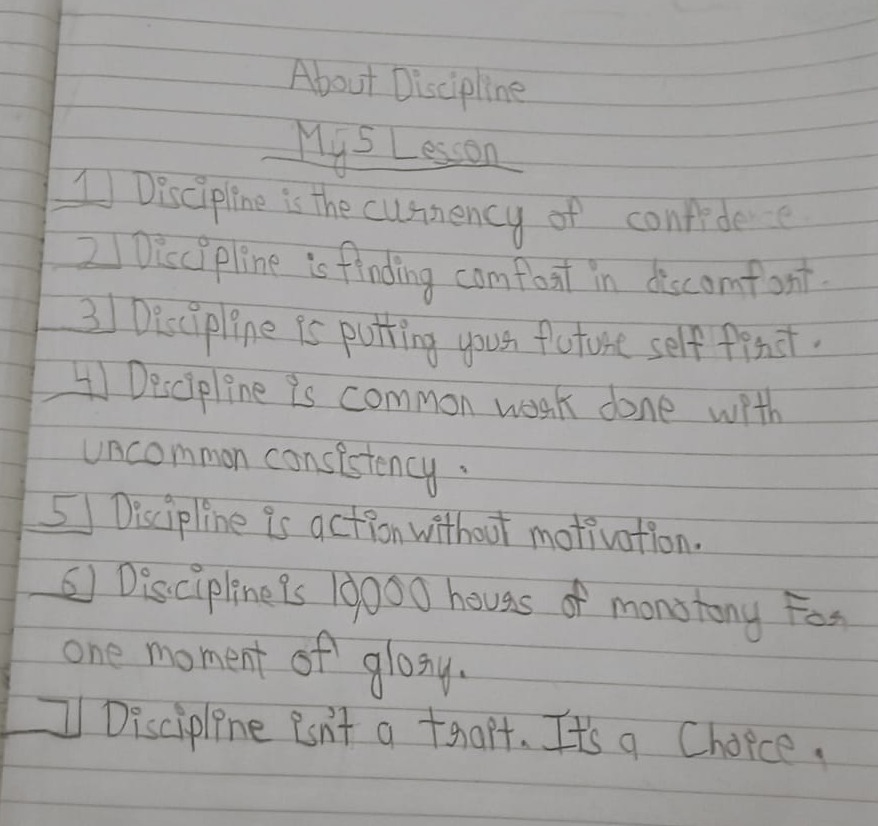 About Discipline
My 5 Lesson
1) Discipline is the currency of confidence
2) Discipline is finding comfort in discomfort.
3) Discipline is putting your future self first.
4) Discipline is common work done with
uncommon consistency.
5) Discipline is action without motivation.
6) Discipline is 10,000 hours of monotony For
one moment of glory.
7) Discipline isn't a trait. It's a Choice.